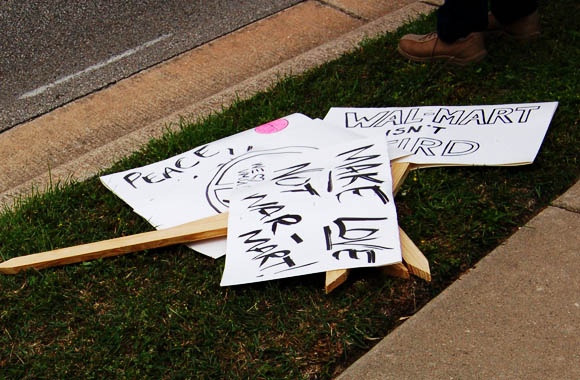 WAL-MART
ISN'T
PEACE
MAKE
LOVE
NOT
WAR-
MART!